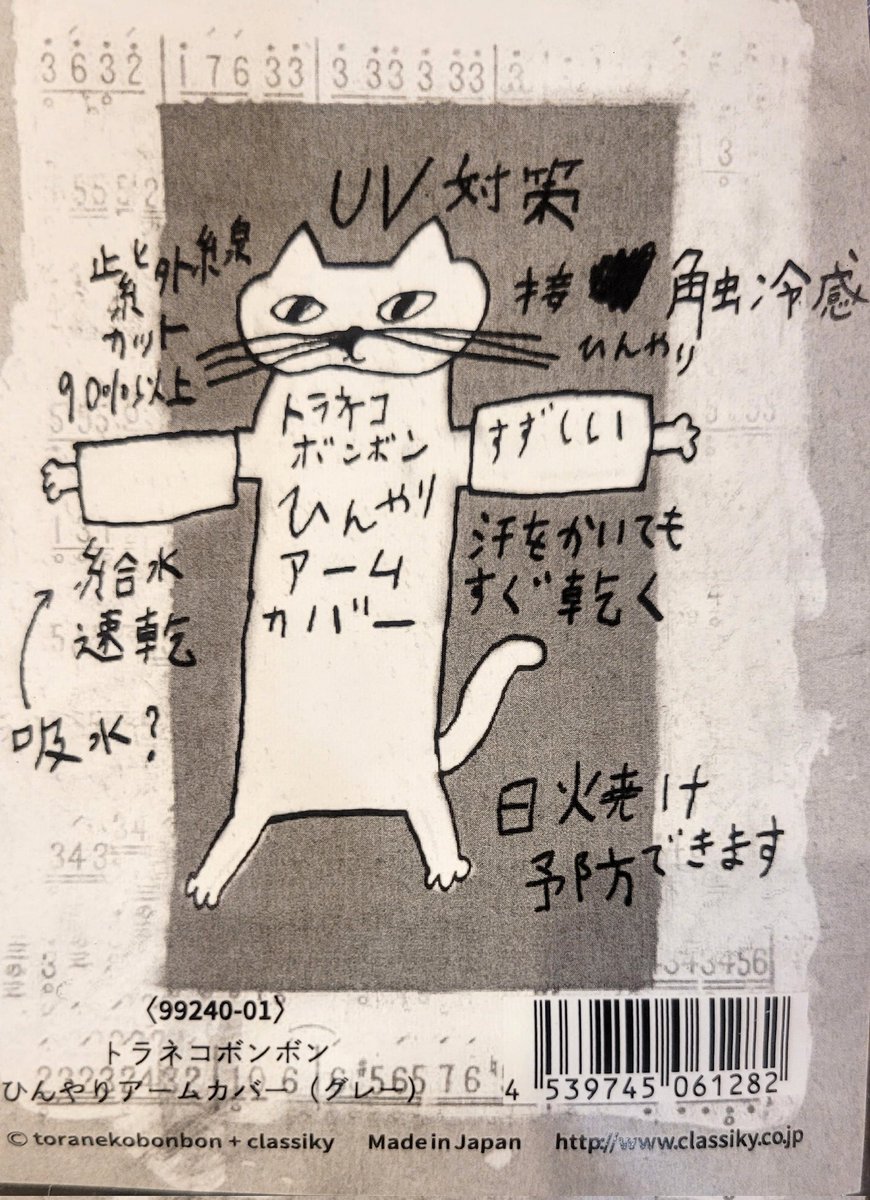 3632 | 176 33 | 3 33 3 33 |
UV対策
紫外線
カット
90%以上
接触冷感
ひんやり
トラネコ
ボンボン
ひんやり
アーム
カバー
すずしい
汗をかいても
すぐ乾く
給水
速乾
吸水?
日焼け
予防できます
343
〈99240-01〉
トラネコボンボン
ひんやりアームカバー（グレー）
4 539745 061282
© toranekobonbon + classiky Made in Japan http://www.classiky.co.jp